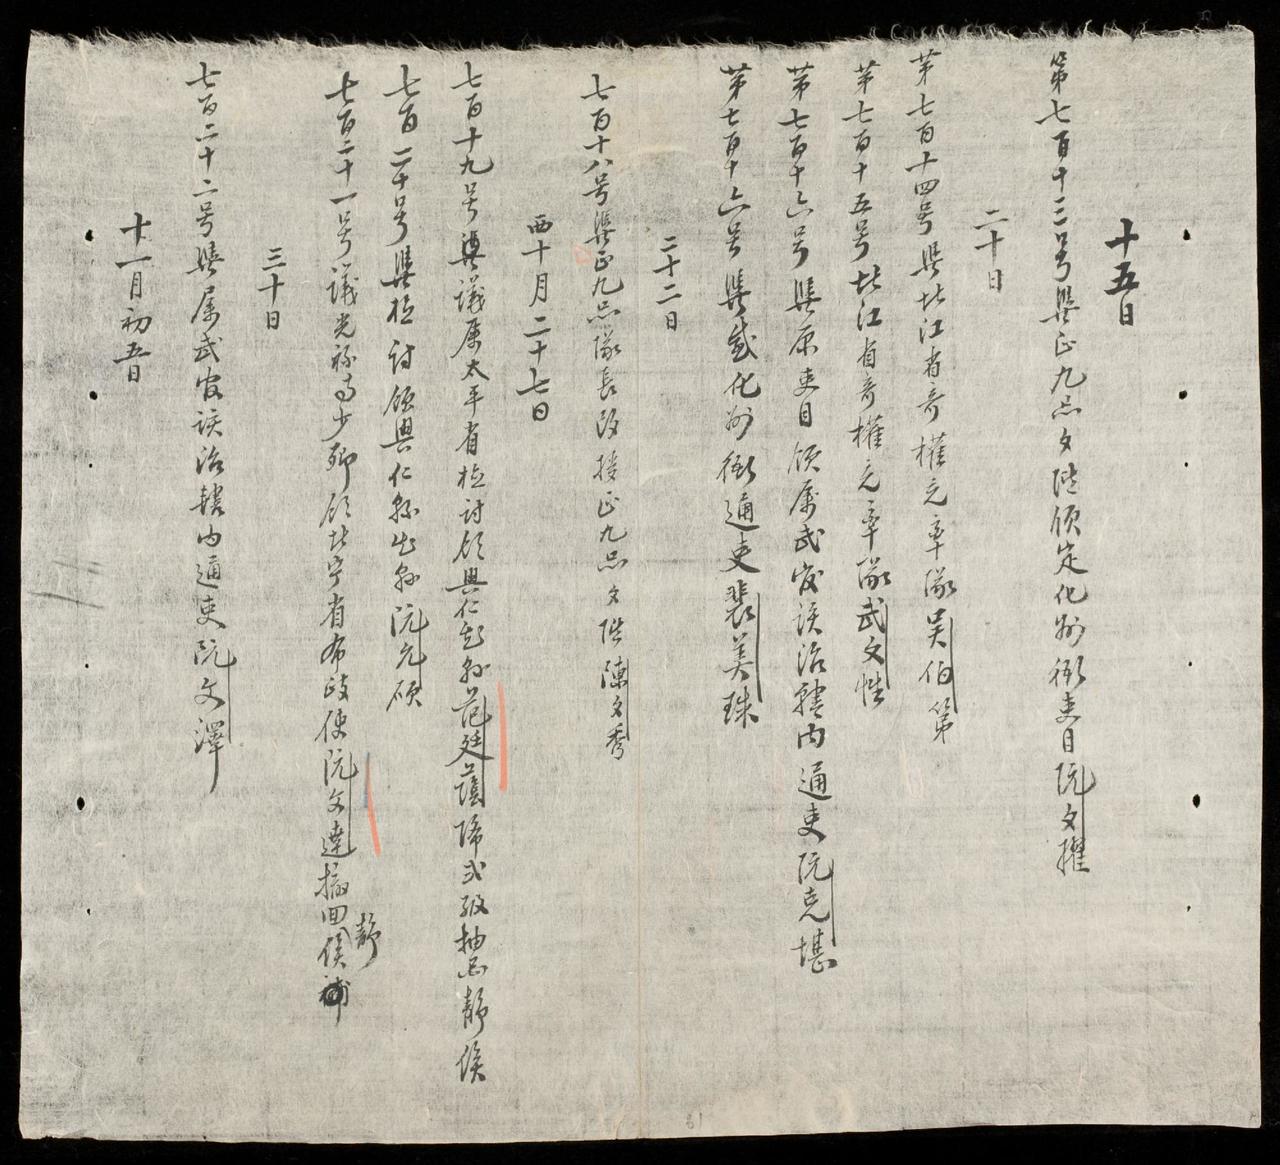 十五日
第七百十三号 正九品文階領定化州衙吏目阮文擢
二十日
第七百十四号 北江省奇權充率隊吴伯第
第七百十五号北江省奇權充率隊武文性
第七百十六号 原吏目領属武安該治轄内通吏阮克堪
第七百十六号 感化州衙通吏裴美珠
二十二日
七百十八号 正九品隊長改授正九品文階陳文秀
西十月二十七日
七百十九号 議属太平省檢討領興仁知縣范廷蔭降弍級抽出靜候
七百二十号 檢討領興仁縣知縣阮允碩
七百二十一号議光祿寺少卿領北宁省布政使阮文達撤回靜候補
三十日
七百二十二号 属武安該治轄内通吏阮文澤
十一月初五日
61